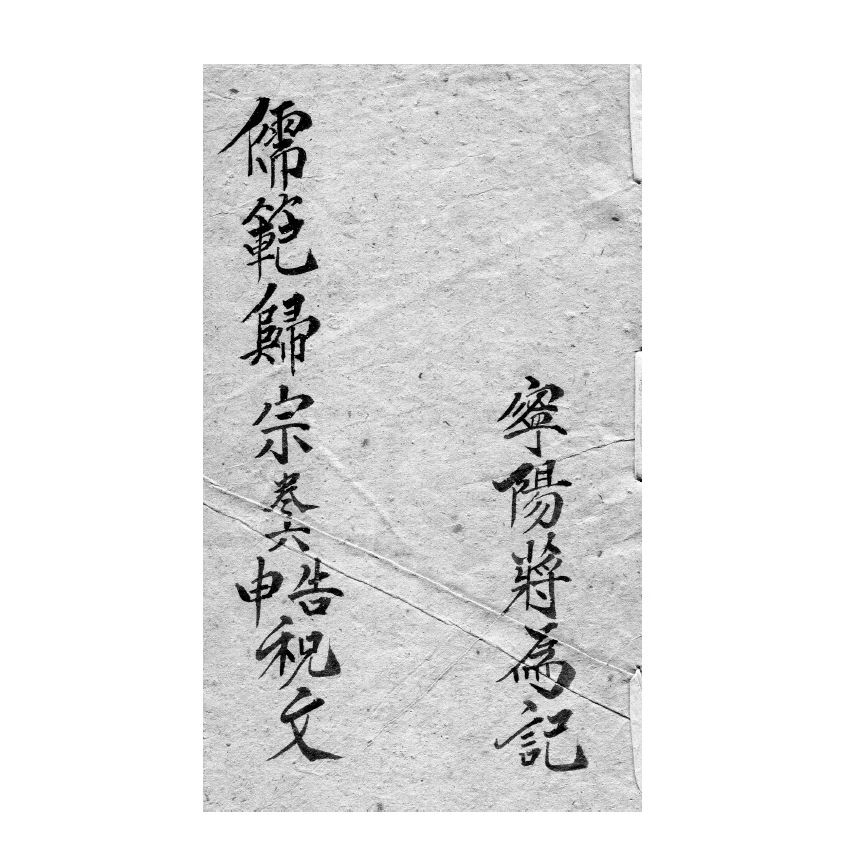 寧陽蔣為記
儒範歸宗卷六告申祝文